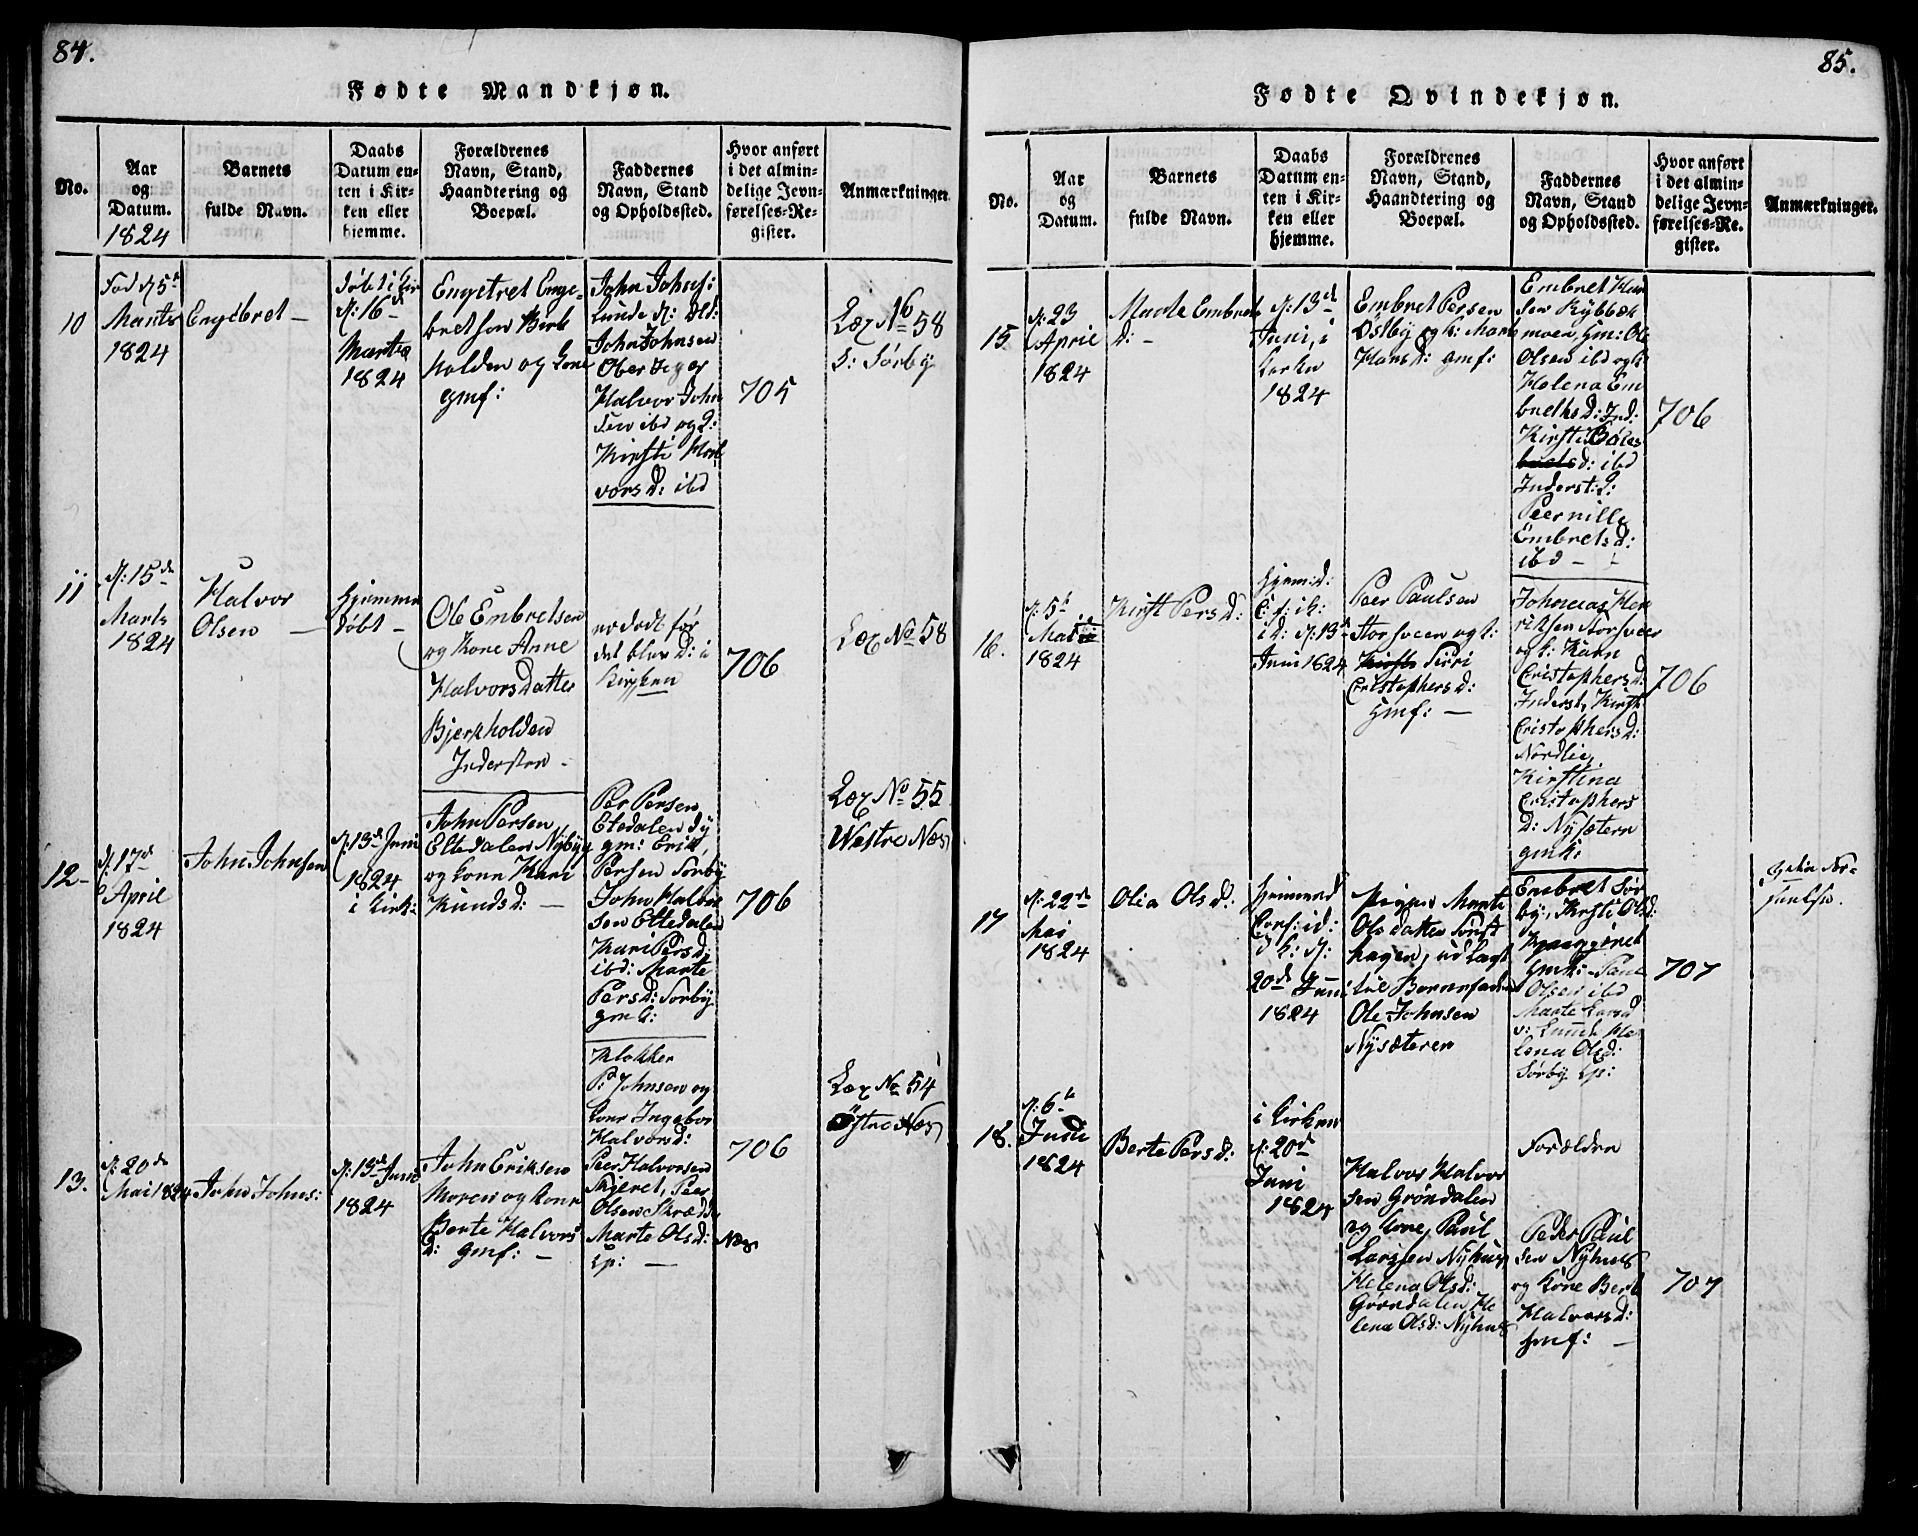 84.
Fødte Mandkjøn.
No.
Aar
og
Datum.
1824
Barnets
fulde Navn.
Daabs
Datum en-
ten i Kir-
ken eller
hjemme.
Forældrenes
Navn, Stand,
Haandtering og
Boepæl.
Faddernes
Navn, Stand
og Opholdssted.
Hvor anført
i det almin-
delige Jevn-
førelses-Re-
gister.
Anmærkninger
10
Marts
1824
Engebret —
16
Marts
1824
Enge-
bretsen
holden og Kone
gmf:
John Johns:
Lunde
John Johnsen
Halvor John
sen ibd og
Kirsti Hal
vorsd: ibd
705
Læx No 58
Sørby
11
d: 15de
Marts
1824
Halvor
Olsen —
Hjemme
døbt —
Ole Embretsen
og Kone Anne
Halvorsdatter
Bjerkholden
Inderster -
er dødt før
det blev d: i
Kirken
706
Læx No 58
12-
d: 17de
April
1824
John Johnsen
d: 13de Juni
1824
i Kirk:
John Persen
Eltedalen Nyby
og kone Kari
Knudsd: —
Per Persen
Etedalen
gm: Erik
Persen Sørby
John Halvor
sen Eltedalen
Kari Persd:
ibd: Marte
Persd: Sørby
gmk:
706
Læx No 55
Westre Næs
13.
d: 20de
Mai 1824
John Johns:
d: 13de Juni
1824
John Eriksen
Moren og kone
Berte Halvors
d: gmf: —
Klokker
P: Johnsen og
kone Ingebor
Halvorsd:
Peer Halvorsen
Skjeret, Peer
Olsen Skrædd
Marte Olsd: Næs
706
Læx No 54
Østre Næs
85.
Fødte Qvindekjøn.
No.
Aar
og
Datum.
Barnets
fulde Navn.
Daabs
Datum en-
ten i Kir-
ken eller
hjemme.
Forældrenes
Navn, Stand,
Haandtering og
Boepæl.
Faddernes
Navn, Stand
og Opholdssted.
Hvor anført
i det almin-
delige Jevn-
førelses-Re-
gister.
Anmærkninger.
15
d: 23
April
1824
Marte Embrets
d: -
d: 13de
Juni, i
Kirken
1824
Embret Persen
Østby og k: Marte
Hansd: gmf:
Embret
sen
moen, gm: Ole
Olsen ibd og k:
Helena Em
bretsd: Ind:
Kirsti
d: ibd
Inderst:
Peernille
Embretsd:
ibd - -
706
16.
d: 5te
Mai
1824
Kirsti Persd:
Hjemd:
d: 13de
Juni 1824
Peer Paulsen
Storsveen og k:
Siri
Cristophersd:
gmf: —
Johannes Hen
riksen Storsveen
og k: Karen
Cristophersd:
Inderst, Kirsti
Cristophersd:
Nordlie,
Kirstina
Cristophers
d: Nysætern
gmk:
706
17
d: 22de
Mai
1824
Olia Olsd:
Hjemmed
20de Juni
1824
Pigen Marte
Olsdatter
hagen, udlagt
til Barnefader
Ole Johnsen
Nysæteren
Embret Sør
by, Kirsti Olsd:
gmk: Paul
Olsen ibd
Marte Larsd
Lunde He
lena Olsd:
Sørby
707
18.
d: 6te
Juni
1824
Berte Persd:
i Kirken
d: 20de
Juni
1824
Halvor Halvor
sen Grøndalen
og kone, Paul
Larssen Nyhus,
Helena Olsd:
Grøndalen He
lena Olsd: Nyhus
Forældre
Peder Paul
sen Nyhus
og Kone Berte
Halvorsd:
gmf: —
707